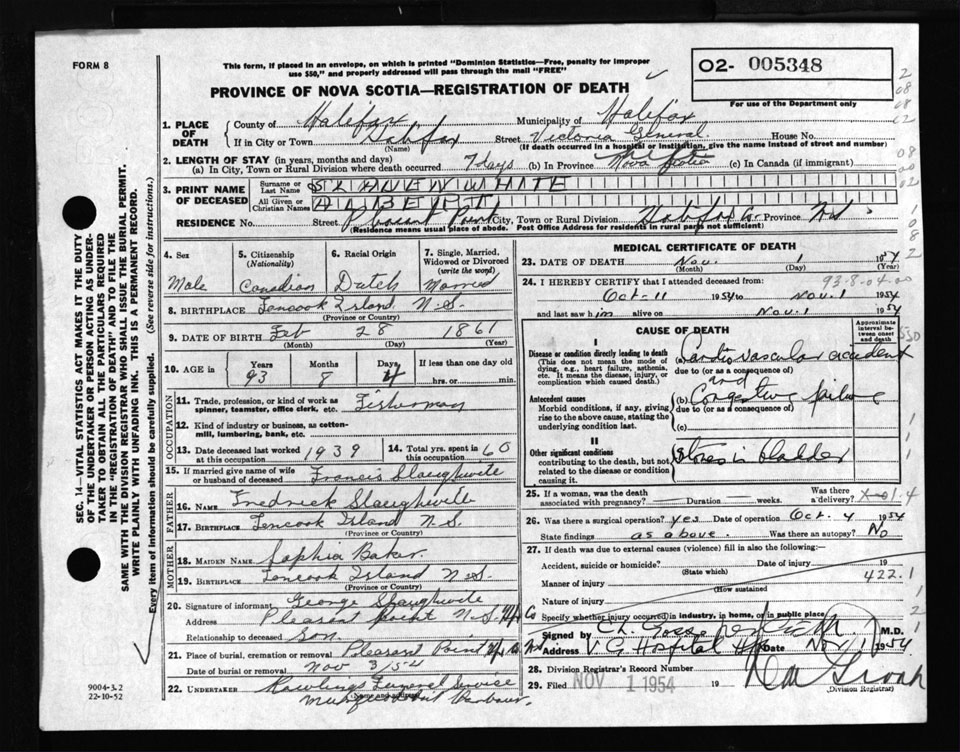 FORM 8
This form, if placed in an envelope, on which is printed "Dominion Statistics—Free, penalty for improper
use $50," and properly addressed will pass through the mail "FREE"
O2- 005348
For use of the Department only
PROVINCE OF NOVA SCOTIA—REGISTRATION OF DEATH
1. PLACE OF DEATH
County of Halifax Municipality of Halifax
If in City or Town Halifax Street Victoria General House No.
(Name) (If death occurred in a hospital or institution, give the name instead of street and number)
2. LENGTH OF STAY (in years, months and days)
(a) In City, Town or Rural Division where death occurred 7 days (b) In Province Nova Scotia (c) In Canada (if immigrant)
3. PRINT NAME OF DECEASED
Surname or Last Name SLAUENWHITE
All Given or Christian Names ALBERT
RESIDENCE No. Street Pleasant Point City, Town or Rural Division Halifax Co Province N.S.
(Residence means usual place of abode. Post Office Address for residents in rural parts not sufficient)
4. Sex
Male
5. Citizenship (Nationality)
Canadian
6. Racial Origin
Dutch
7. Single, Married, Widowed or Divorced (write the word)
Married
8. BIRTHPLACE Tancook Island N.S.
(Province or Country)
9. DATE OF BIRTH Feb 28 1861
(Month) (Day) (Year)
10. AGE in Years Months Days If less than one day old
93 8 4 hrs. or min.
OCCUPATION
11. Trade, profession, or kind of work as spinner, teamster, office clerk, etc. Fisherman
12. Kind of industry or business, as cotton-mill, lumbering, bank, etc.
13. Date deceased last worked at this occupation 1939
14. Total yrs. spent in this occupation 60
15. If married give name of wife or husband of deceased Francis Slaughwite
FATHER
16. NAME Fredrick Slaughwite
17. BIRTHPLACE Tancook Island N.S.
(Province or Country)
MOTHER
18. MAIDEN NAME Sophia Baker
19. BIRTHPLACE Tancook Island N.S.
(Province or Country)
20. Signature of informant George Slaughwite
Address Pleasant Point N.S. Hfx Co
Relationship to deceased Son
21. Place of burial, cremation or removal Pleasant Point
Date of burial or removal Nov 3/54
22. UNDERTAKER Rawlings Funeral Service
(Name and address)
Musquodoboit Harbour
MEDICAL CERTIFICATE OF DEATH
23. DATE OF DEATH Nov. 1 1954
(Month) (Day) (Year)
24. I HEREBY CERTIFY that I attended deceased from
93-8-04-00
Oct 11 1954 to Nov. 1 1954
and last saw him alive on Nov. 1 1954
CAUSE OF DEATH
Approximate interval between onset and death
I
Disease or condition directly leading to death
(This does not mean the mode of dying, e.g., heart failure, asthenia, etc. It means the disease, injury, or complication which caused death.)
(a) Cardio vascular accident
due to (or as a consequence of)
and
Antecedent causes
Morbid conditions, if any, giving rise to the above cause, stating the underlying condition last.
(b) Congestive failure
due to (or as a consequence of)
(c)
II
Other significant conditions
contributing to the death, but not related to the disease or condition causing it.
Stones in bladder
25. If a woman, was the death associated with pregnancy? Duration weeks. Was there a delivery?
26. Was there a surgical operation? yes Date of operation Oct. 4 1954
State findings as above. Was there an autopsy? No
27. If death was due to external causes (violence) fill in also the following:—
Accident, suicide or homicide? Date of injury 19
(State which)
422.1
Manner of injury
(How sustained)
Nature of injury
Specify whether injury occurred in industry, in home, or in public place
Signed by M.D.
Address V G Hospital Hfx Date Nov 1 1954
28. Division Registrar's Record Number
29. Filed NOV 1 1954 19
(Division Registrar)
SEC. 14—VITAL STATISTICS ACT MAKES IT THE DUTY
OF THE UNDERTAKER OR PERSON ACTING AS UNDER-
TAKER TO OBTAIN ALL THE PARTICULARS REQUIRED
IN THE "REGISTRATION OF DEATH" AND TO FILE THE
SAME WITH THE DIVISION REGISTRAR WHO SHALL ISSUE THE BURIAL PERMIT.
WRITE PLAINLY WITH UNFADING INK. THIS IS A PERMANENT RECORD.
Every item of information should be carefully supplied. (See reverse side for instructions.)
9004-3.2
22-10-52